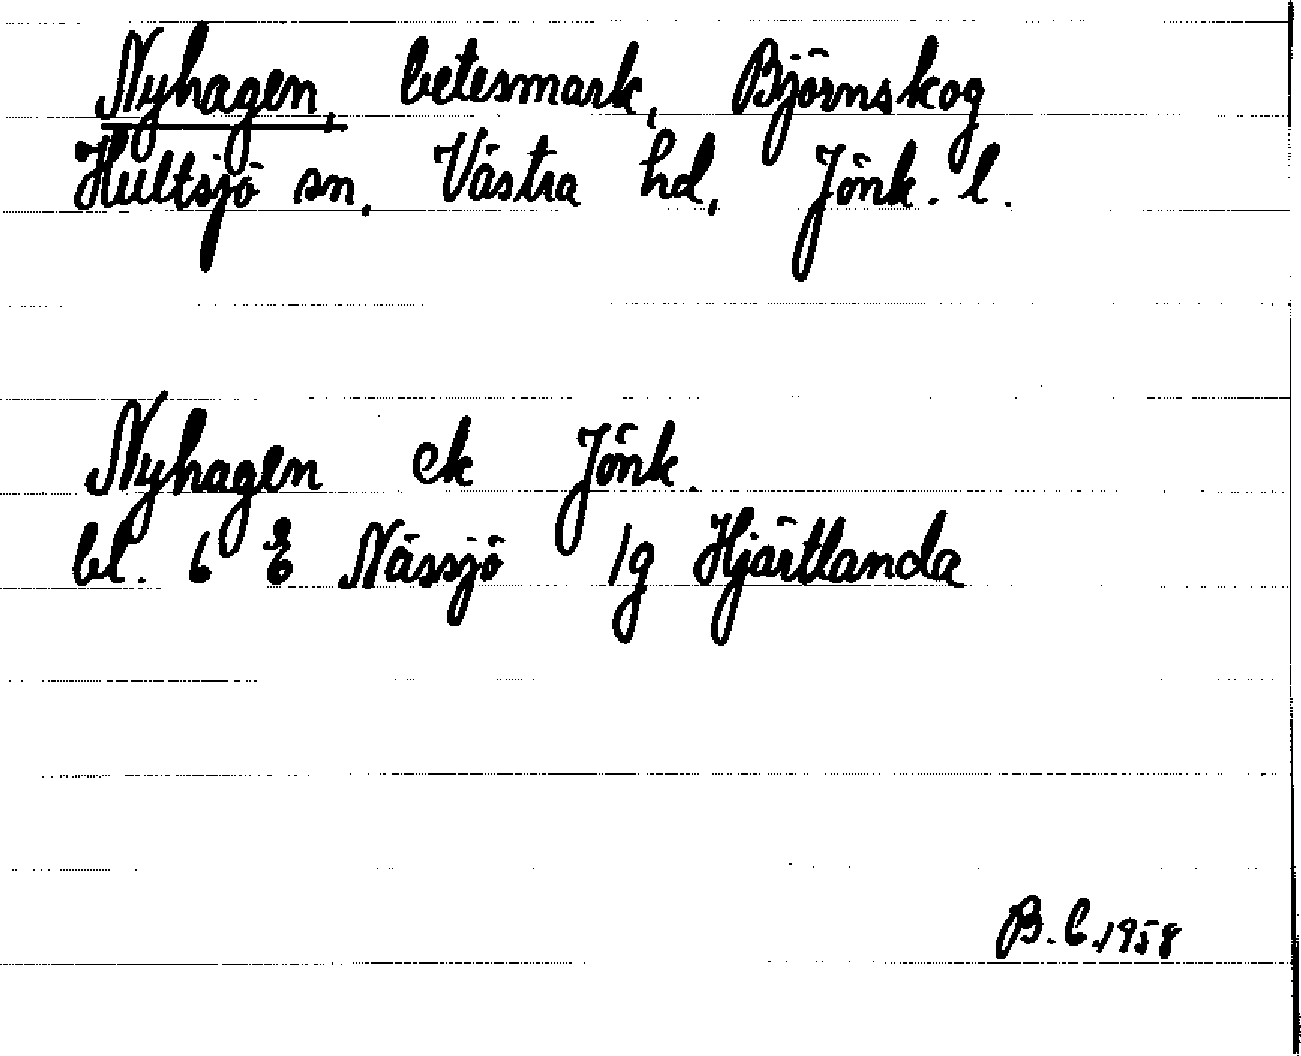 Nyhagen, betesmark, Björnskog
Hultsjö sn, Västra hd, Jönk. l.
Nyhagen ek Jönk.
bl. 6 E Nässjö 1g Hjärtlanda
B.C. 1958